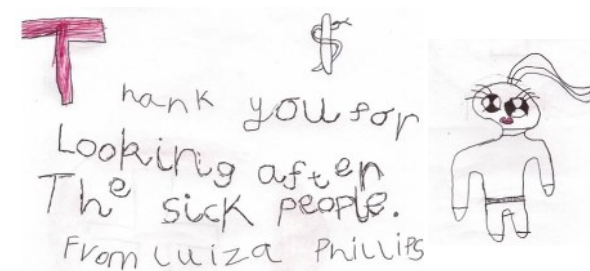 Thank you for
Looking after
The sick people.
From Luiza Phillips